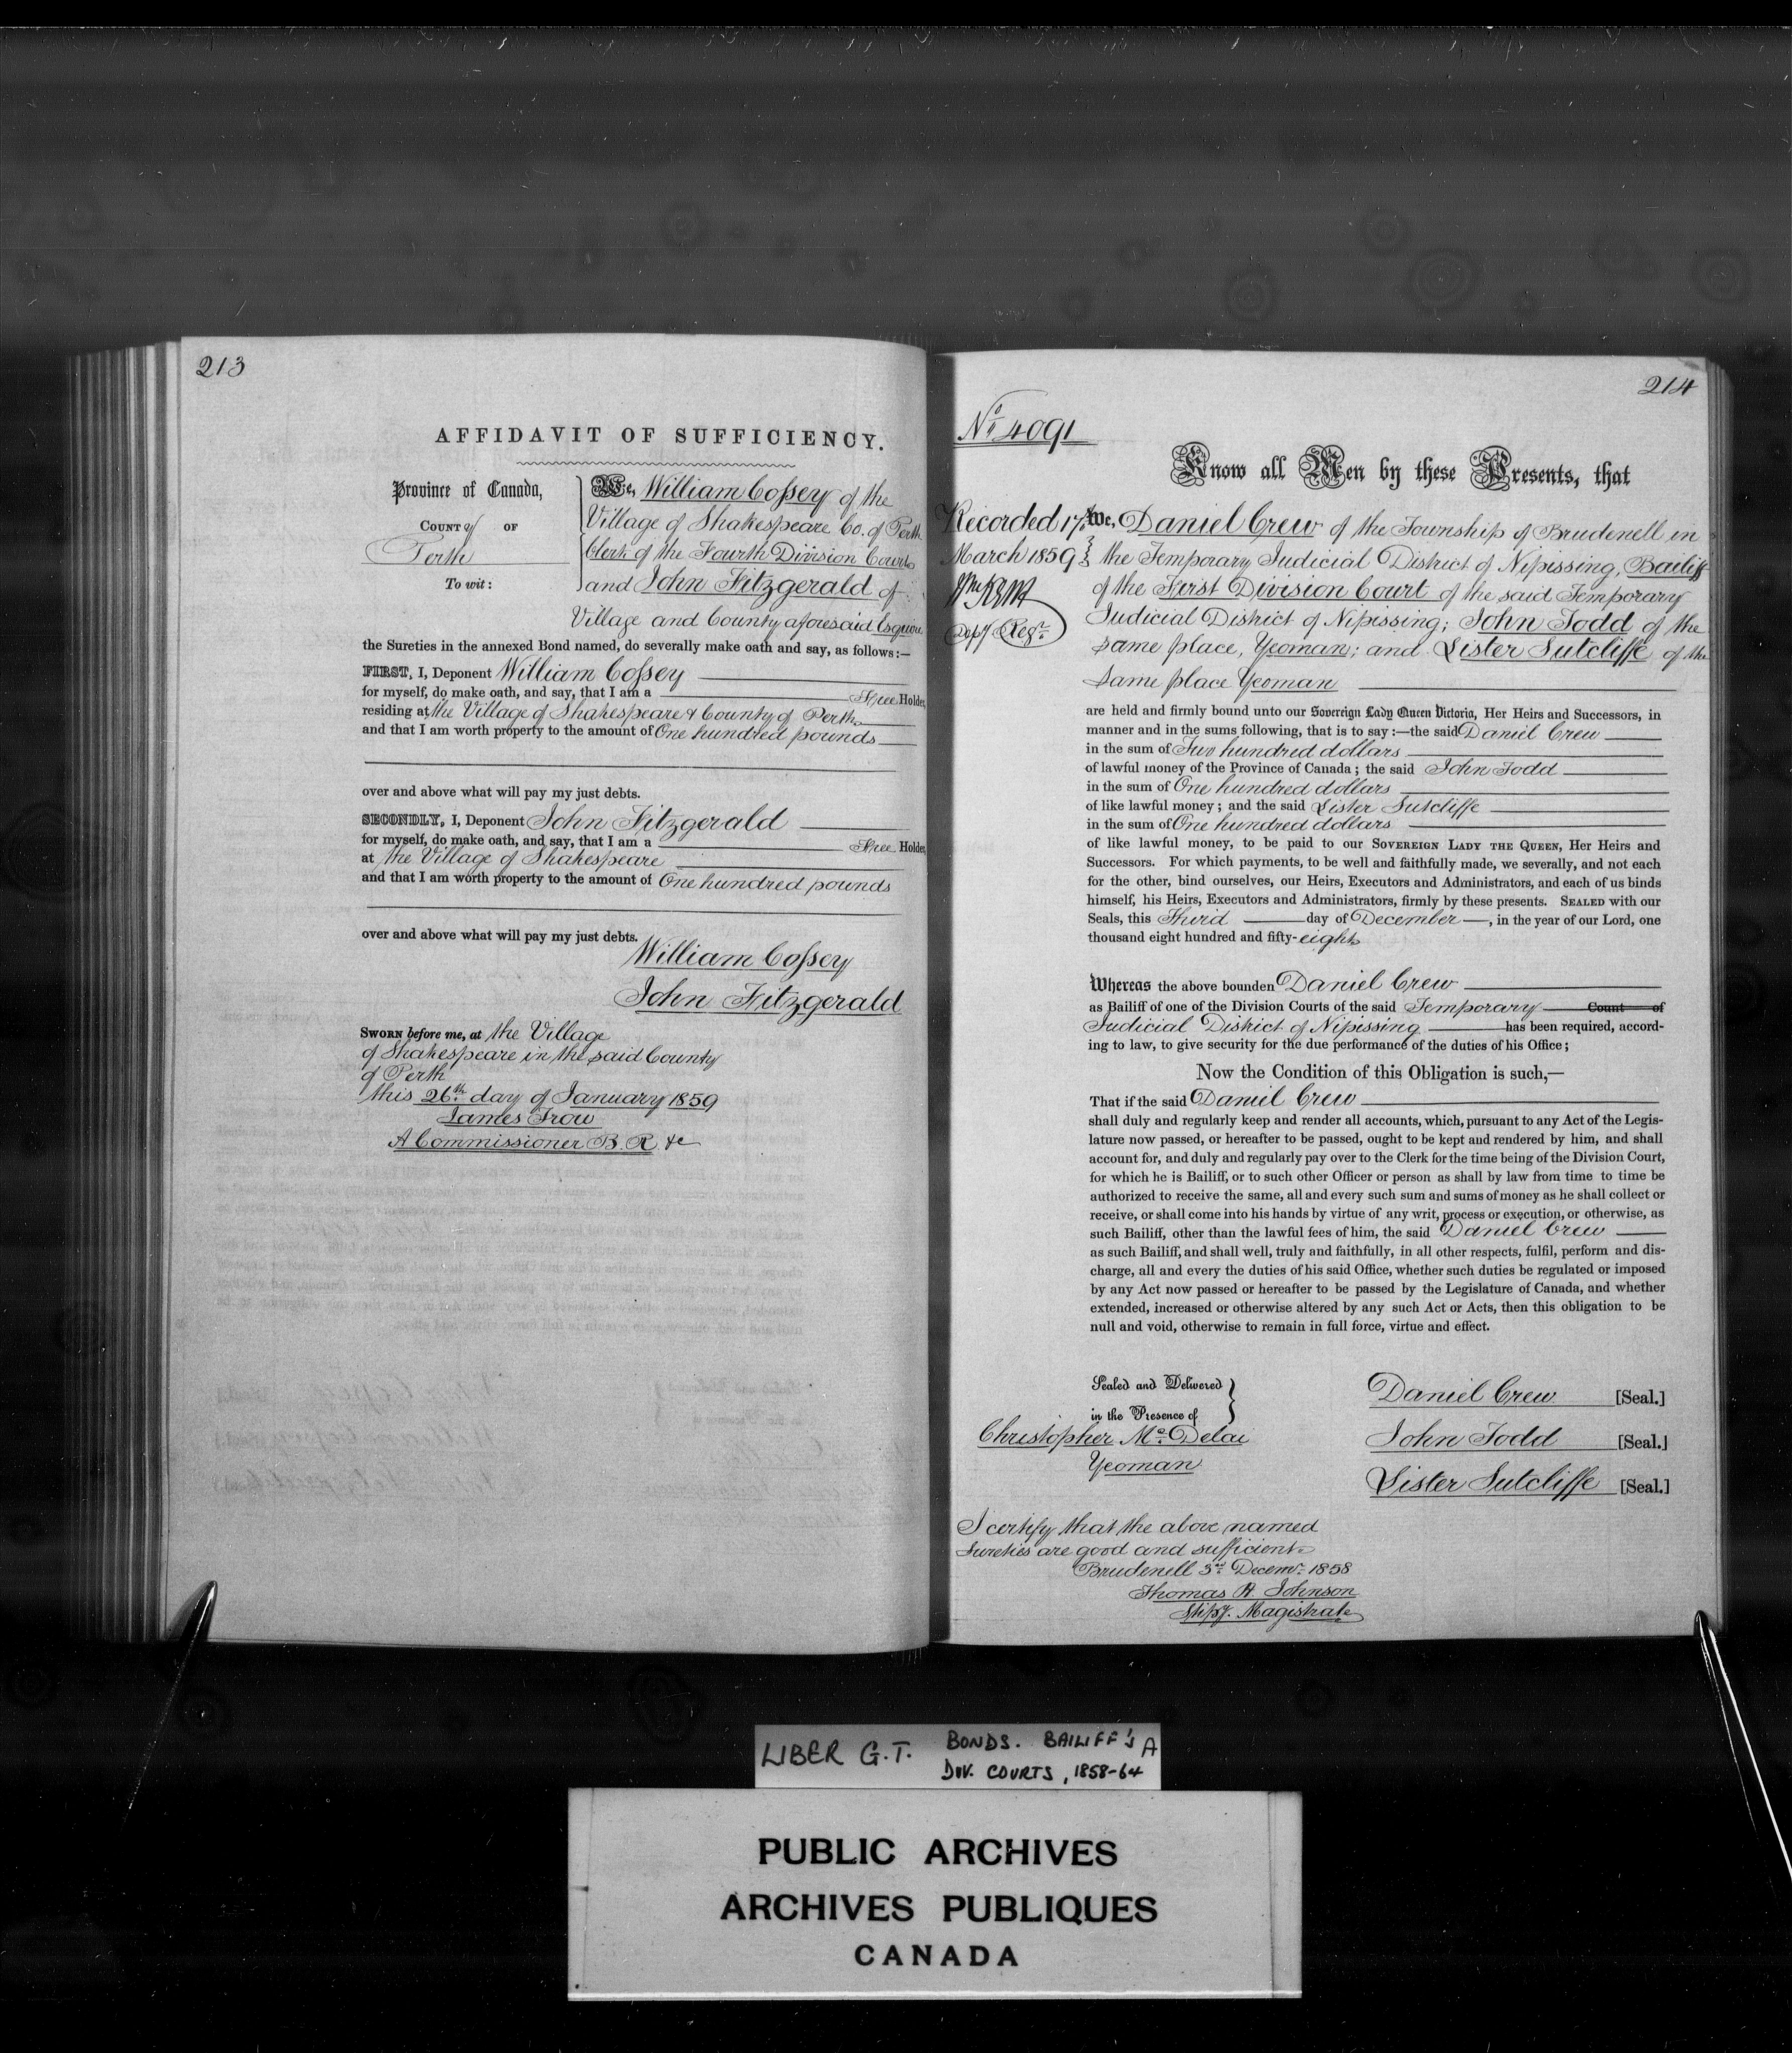 213
AFFIDAVIT OF SUFFICIENCY.
Province of Canada,
County of
Perth
To wit:
We, William Cossey of the
Village of Shakespeare Co. of Perth
Clerk of the Fourth Division Court
and John Fitzgerald of
Village and County aforesaid Esquire
the Sureties in the annexed Bond named, do severally make oath and say, as follows:—
FIRST, I, Deponent William Cossey
for myself, do make oath, and say, that I am a Free Holder,
residing at the Village of Shakespeare & County of Perth
and that I am worth property to the amount of One hundred pounds
over and above what will pay my just debts.
SECONDLY, I, Deponent John Fitzgerald
for myself, do make oath, and say, that I am a Free Holder,
at the Village of Shakespeare
and that I am worth property to the amount of One hundred pounds
over and above what will pay my just debts.
William Cossey
John Fitzgerald
Sworn before me, at the Village
of Shakespeare in the said County
of Perth
this 26th day of January 1859
James Trow
A Commissioner B. R. &c
214
No. 4091
Know all Men by these Presents, that
Recorded 17th
March 1859
Depy Regr
We, Daniel Crew of the Township of Brudenell in
the Temporary Judicial District of Nipissing, Bailiff
of the First Division Court of the said Temporary
Judicial District of Nipissing; John Todd of the
same place, Yeoman; and Lister Sutcliffe of the
same place Yeoman
are held and firmly bound unto our Sovereign Lady Queen Victoria, Her Heirs and Successors, in
manner and in the sums following, that is to say:—the said Daniel Crew
in the sum of Two hundred dollars
of lawful money of the Province of Canada; the said John Todd
in the sum of One hundred dollars
of like lawful money; and the said Lister Sutcliffe
in the sum of One hundred dollars
of like lawful money, to be paid to our Sovereign Lady the Queen, Her Heirs and
Successors. For which payments, to be well and faithfully made, we severally, and not each
for the other, bind ourselves, our Heirs, Executors and Administrators, and each of us binds
himself, his Heirs, Executors and Administrators, firmly by these presents. Sealed with our
Seals, this Third day of December, in the year of our Lord, one
thousand eight hundred and fifty-eight
Whereas the above bounden Daniel Crew
as Bailiff of one of the Division Courts of the said Temporary Count of
Judicial District of Nipissing has been required, accord-
ing to law, to give security for the due performance of the duties of his Office;
Now the Condition of this Obligation is such,—
That if the said Daniel Crew
shall duly and regularly keep and render all accounts, which, pursuant to any Act of the Legis-
lature now passed, or hereafter to be passed, ought to be kept and rendered by him, and shall
account for, and duly and regularly pay over to the Clerk for the time being of the Division Court,
for which he is Bailiff, or to such other Officer or person as shall by law from time to time be
authorized to receive the same, all and every such sum and sums of money as he shall collect or
receive, or shall come into his hands by virtue of any writ, process or execution, or otherwise, as
such Bailiff, other than the lawful fees of him, the said Daniel Crew
as such Bailiff, and shall well, truly and faithfully, in all other respects, fulfil, perform and dis-
charge, all and every the duties of his said Office, whether such duties be regulated or imposed
by any Act now passed or hereafter to be passed by the Legislature of Canada, and whether
extended, increased or otherwise altered by any such Act or Acts, then this obligation to be
null and void, otherwise to remain in full force, virtue and effect.
Sealed and Delivered
in the Presence of
Christopher Mc
Yeoman
Daniel Crew [Seal.]
John Todd [Seal.]
Lister Sutcliffe [Seal.]
I certify that the above named
sureties are good and sufficient
Brudenell 3rd Decemr. 1858
Thomas A. Johnson
Stipy. Magistrate
LIBER G.T. BONDS. BAILIFF'S A
DIV. COURTS, 1858-64
PUBLIC ARCHIVES
ARCHIVES PUBLIQUES
CANADA